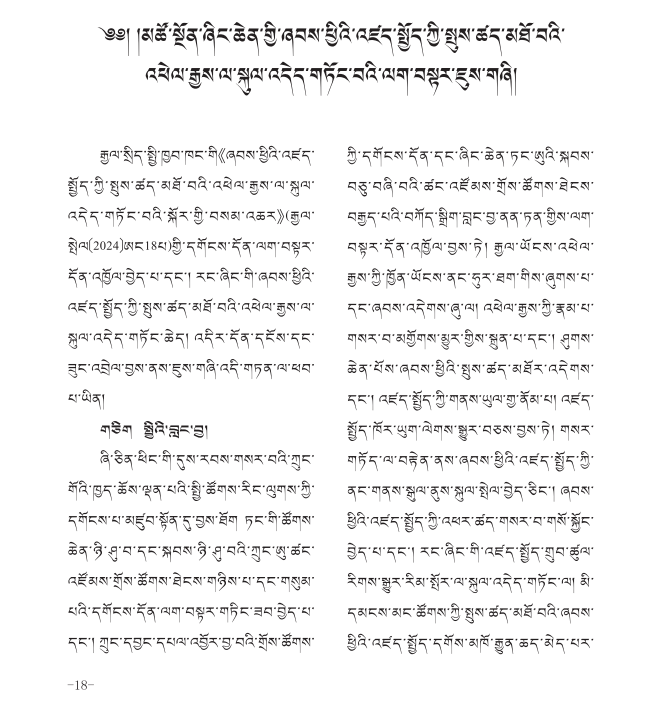 ༄༅། །མཚོ་སྔོན་ཞིང་ཆེན་གྱི་ཞབས་ཕྱིའི་འཛད་སྤྱོད་ཀྱི་སྤུས་ཚད་མཐོ་བའི་
འཕེལ་རྒྱས་ལ་སྐུལ་འདེད་གཏོང་བའི་ལག་བསྟར་ཇུས་གཞི།
རྒྱལ་སྲིད་སྤྱི་ཁྱབ་ཁང་གི《ཞབས་ཕྱིའི་འཛད་
སྤྱོད་ཀྱི་སྤུས་ཚད་མཐོ་བའི་འཕེལ་རྒྱས་ལ་སྐུལ་
འདེད་གཏོང་བའི་སྐོར་གྱི་བསམ་འཆར》(རྒྱལ་
སྤེལ(2024)ཨང18པ)གྱི་དགོངས་དོན་ལག་བསྟར་
དོན་འཁྱོལ་བྱེད་པ་དང་། རང་ཞིང་གི་ཞབས་ཕྱིའི་
འཛད་སྤྱོད་ཀྱི་སྤུས་ཚད་མཐོ་བའི་འཕེལ་རྒྱས་ལ་
སྐུལ་འདེད་གཏོང་ཆེད། འདིར་དོན་དངོས་དང་
ཟུང་འབྲེལ་བྱས་ནས་ཇུས་གཞི་འདི་གཏན་ལ་ཕབ་
པ་ཡིན།
གཅིག སྤྱིའི་བླང་བྱ།
ཞི་ཅིན་ཕིང་གི་དུས་རབས་གསར་བའི་ཀྲུང་
གོའི་ཁྱད་ཆོས་ལྡན་པའི་སྤྱི་ཚོགས་རིང་ལུགས་ཀྱི་
དགོངས་པ་མཛུབ་སྟོན་དུ་བྱས་ཐོག ཏང་གི་ཚོགས་
ཆེན་ཉི་ཤུ་བ་དང་སྐབས་ཉི་ཤུ་བའི་ཀྲུང་ཨུ་ཚང་
འཛོམས་གྲོས་ཚོགས་ཐེངས་གཉིས་པ་དང་གསུམ་
པའི་དགོངས་དོན་ལག་བསྟར་གཏིང་ཟབ་བྱེད་པ་
དང་། ཀྲུང་དབྱང་དཔལ་འབྱོར་བྱ་བའི་གྲོས་ཚོགས་
ཀྱི་དགོངས་དོན་དང་ཞིང་ཆེན་ཏང་ཨུའི་སྐབས་
བཅུ་བཞི་བའི་ཚང་འཛོམས་གྲོས་ཚོགས་ཐེངས་
བརྒྱད་པའི་བཀོད་སྒྲིག་བླང་བྱ་ནན་ཏན་གྱིས་ལག་
བསྟར་དོན་འཁྱོལ་བྱས་ཏེ། རྒྱལ་ཡོངས་འཕེལ་
རྒྱས་ཀྱི་ཁྱོན་ཡོངས་ནང་ཧུར་ཐག་གིས་ཞུགས་པ་
དང་ཞབས་འདེགས་ཞུ་ལ། འཕེལ་རྒྱས་ཀྱི་རྣམ་པ་
གསར་བ་མགྱོགས་མྱུར་གྱིས་སྐྲུན་པ་དང་། ཤུགས་
ཆེན་པོས་ཞབས་ཕྱིའི་སྤུས་ཚད་མཐོར་འདེགས་
དང་། འཛད་སྤྱོད་ཀྱི་གནས་ཡུལ་གྱ་ནོམ་པ། འཛད་
སྤྱོད་ཁོར་ཡུག་ལེགས་སྒྱུར་བཅས་བྱས་ཏེ། གསར་
གཏོད་ལ་བརྟེན་ནས་ཞབས་ཕྱིའི་འཛད་སྤྱོད་ཀྱི་
ནང་གནས་སྒུལ་ནུས་སྐུལ་སྤེལ་བྱེད་ཅིང་། ཞབས་
ཕྱིའི་འཛད་སྤྱོད་ཀྱི་འཕར་ཚད་གསར་བ་གསོ་སྐྱོང་
བྱེད་པ་དང་། རང་ཞིང་གི་འཛད་སྤྱོད་གྲུབ་ཚུལ་
རིགས་སྒྱུར་རིམ་སྤོར་ལ་སྐུལ་འདེད་གཏོང་ལ། མི་
དམངས་མང་ཚོགས་ཀྱི་སྤུས་ཚད་མཐོ་བའི་ཞབས་
ཕྱིའི་འཛད་སྤྱོད་དགོས་མཁོ་རྒྱུན་ཆད་མེད་པར་
-18-